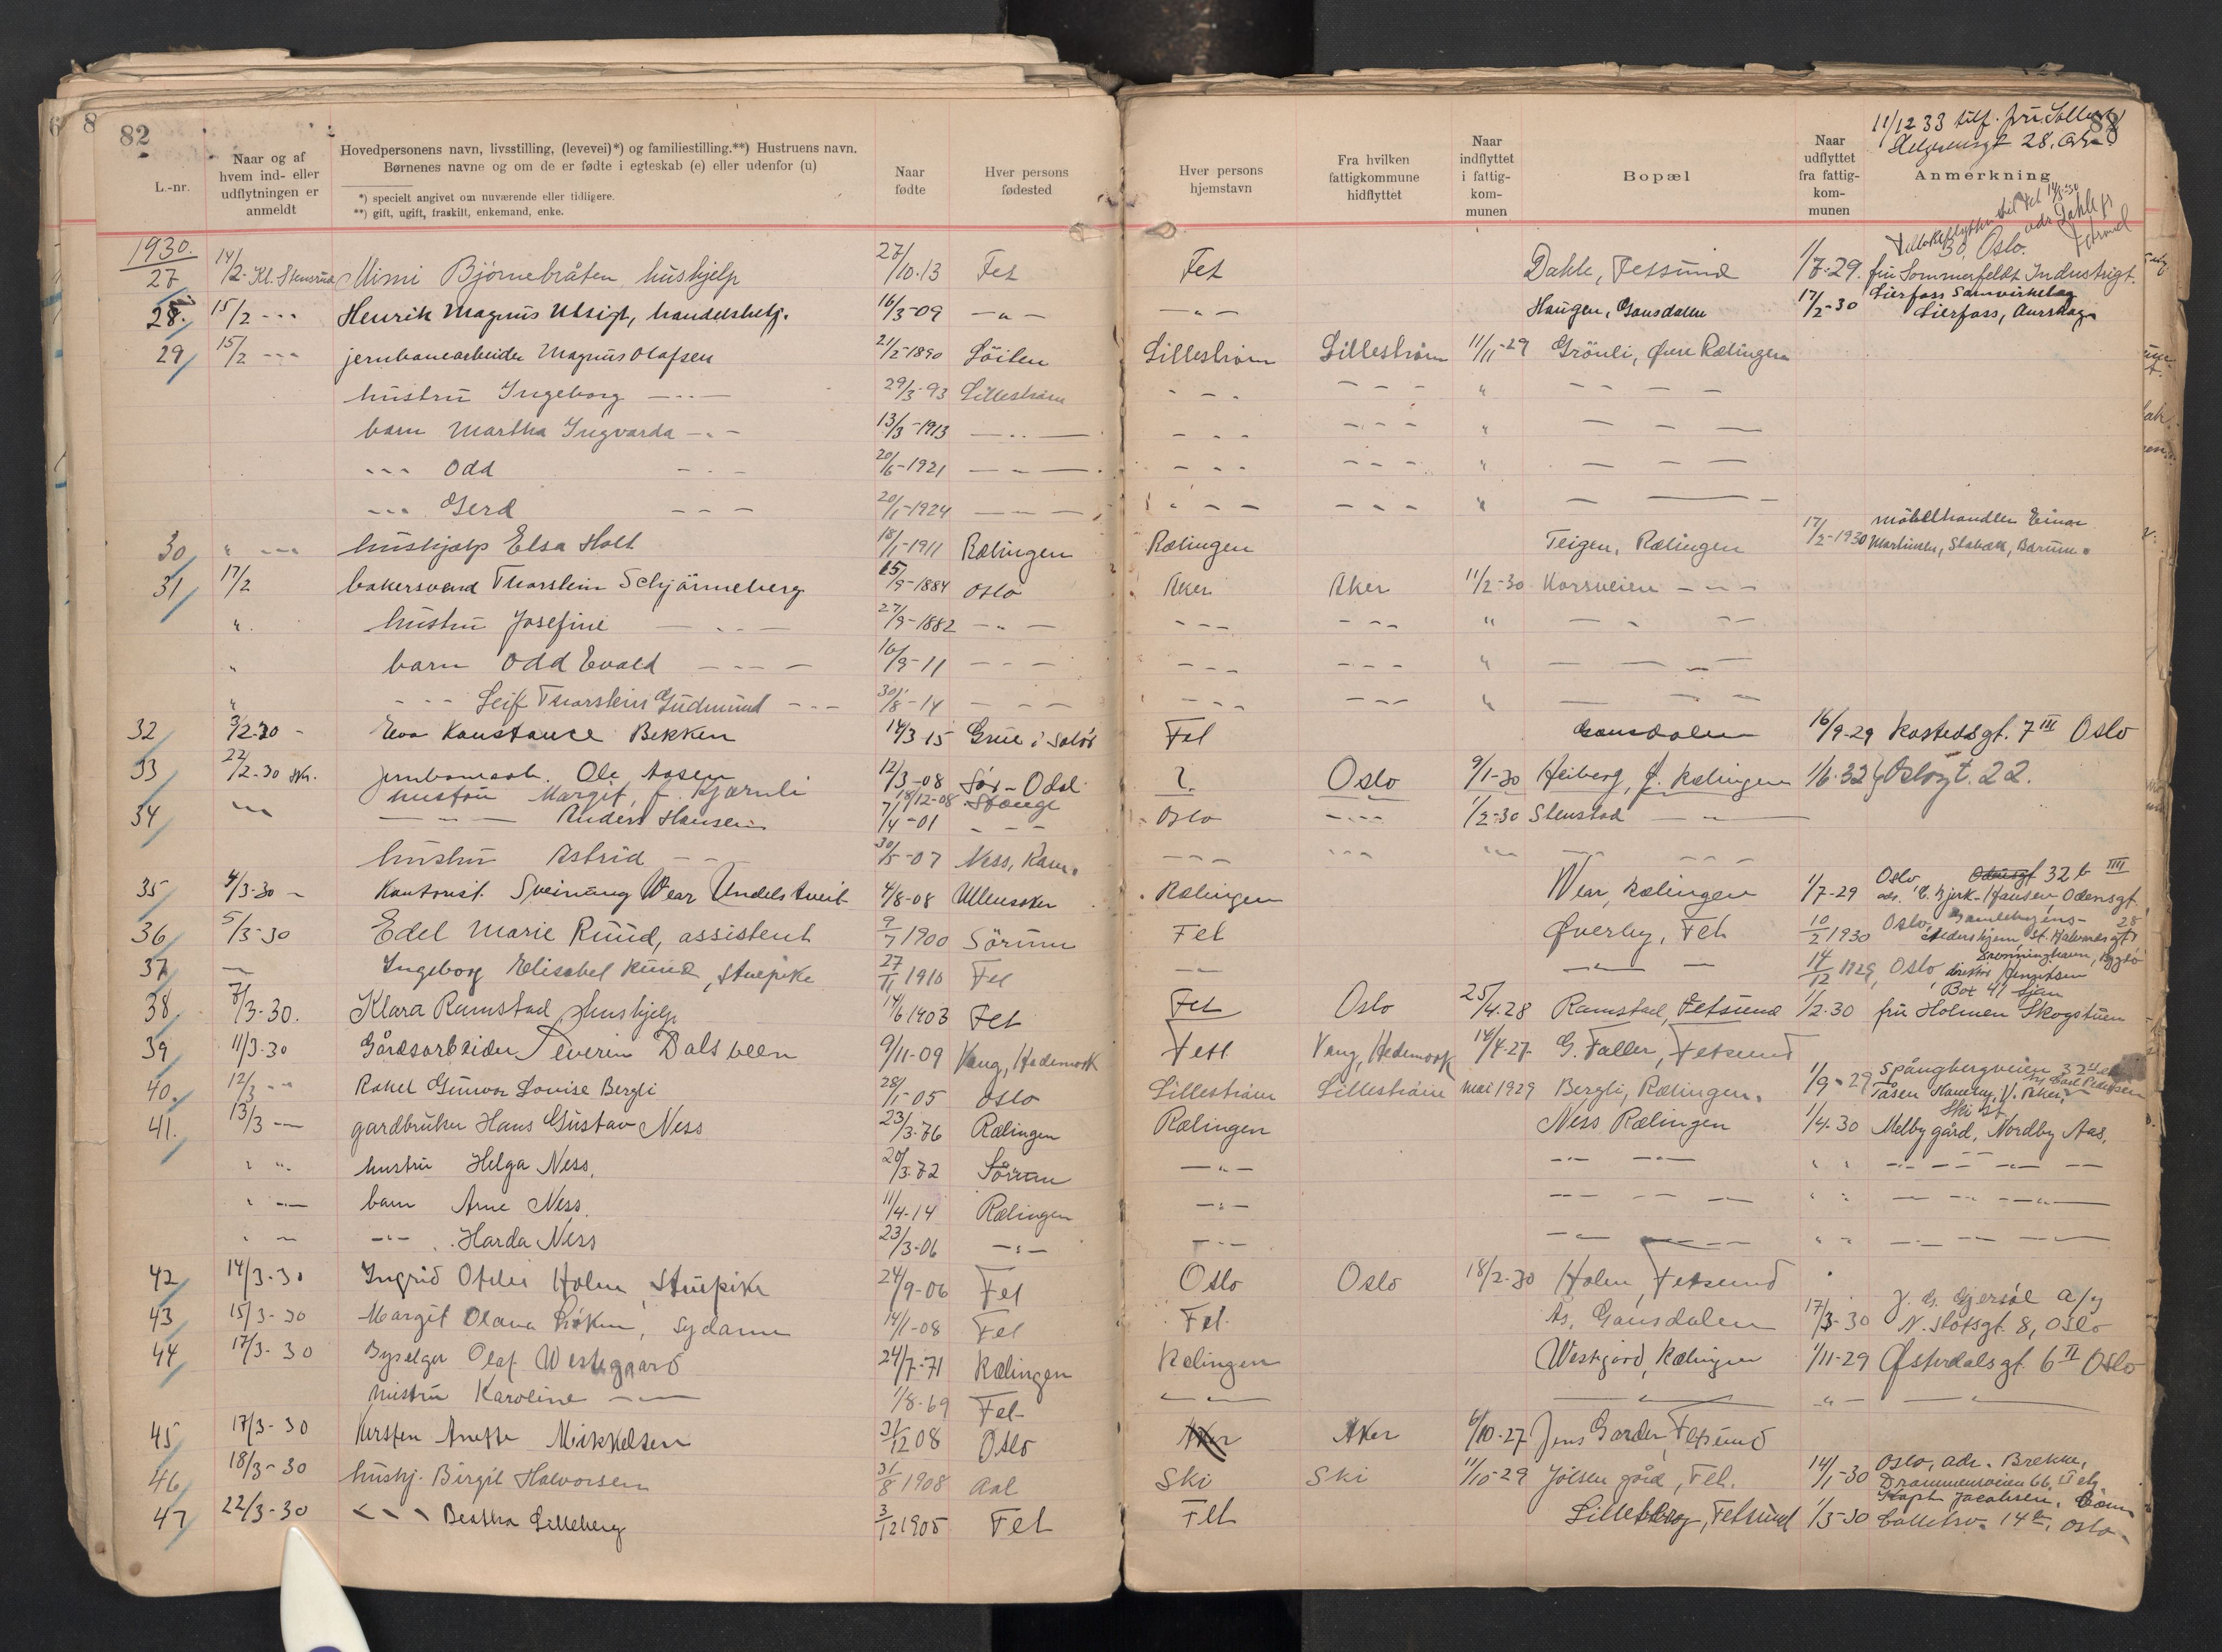 82
L.-nr.
Naar og af hvem ind- eller udflytningen er anmeldt
Hovedpersonens navn, livsstilling, (levevei)*) og familiestilling.**) Hustruens navn.
Børnenes navne og om de er fødte i egteskab (e) eller udenfor (u)
*) specielt angivet om nuværende eller tidligere.
**) gift, ugift, fraskilt, enkemand, enke.
Naar fødte
Hver persons fødested
Hver persons hjemstavn
Fra hvilken fattigkommune hidflyttet
Naar indflyttet i fattigkommunen
Bopæl
Naar udflyttet fra fattigkommunen
Anmerkning
11/12 33 tilf. fru
28. Oslo
Fetsund
30, Oslo.
1930.
27 14/2- Kl. Stensrud Mimi Bjørnebråten, hushjelp 27/10-13 Fet Fet Dahle, Fetsund 1/7-29. fru Sommerfeldt Industrigt.
28. 15/2 - - - Henrik Magnus Utsigt, handelsbetj. 16/3-09 - " - - " - Haugen, Gansdalen 17/2-30 Lierfoss Samvirkelag
Lierfoss, Aurskog
29 15/2 - - - jernbanearbeider Magnus Olafsen 21/2-1890 Löiten Lilleström Lilleström 11/11-29 Grönli, Øvre Rælingen
hustru Ingeborg - " - 29/3-93 Lilleström - - - - - - " - - -
barn Martha Ingvarda - " - 13/3-1913 - " - - - - - - - " - - -
- - - Odd - - - 20/6-1921 - " - - - - - - - " - - -
- - - Gerd - - - 20/1-1924 - - - - - - - - - " - - -
møbelhandler Einar
30 " - - - hushjælp Elsa Holt 18/1-1911 Rælingen Rælingen Teigen, Rælingen 17/2-1930 Martinsen, Stabæk, Bærum.
31 17/2 bakersvend Thorstein Schjönneberg 15/9-1884 Oslo Aker Aker 11/2-30 Korsveien - - -
" hustru Josefine - - - 27/9-1882 - " - - - - - - - " - - -
" barn Odd Evald - - - 16/9-11 - - - - - - - - - " - - -
" - - - Leif Thorstein Gudmund - - - 30/8-14 - - - - - - - - - " - - -
32 3/2-30 - Eva Konstance Bekken 14/3 15 Grue i Solör Fet Gansdalen 16/9-29 Kostedsgt. 7 III Oslo
33 22/2-30 Jernbanearb. Ole Aasen 12/3-08 Sør-Odal ? Oslo 9/1-30 Heiberg, f. Rælingen 1/6-32 Oslogt. 22.
hustru Margit, f. Kjærnli 18/12-08 Stange
34 - - - - - - Anders Hansen 7/4-01 - - - Oslo - - - 1/2-30 Stenstad - " -
hustru Astrid - - 30/5-07 Ness, Rom. - - - - - - - - - - - -
35 4/3-30 - Kontorist. Sveinung Wear Undelstveit 4/8-08 Ullensaker Rælingen Wear, Rælingen 1/7-29 Oslo Odensgt 32 b III
adr. Hansen, Odensgt.
36 5/3-30 Edel Marie Ruud, assistent 9/7 1900 Sörum Fet Øverby, Fet 10/2 1930 Oslo, Gamlebyens 28
Aldershjem, St. Halvardsgt
37 - Ingeborg Elisabet Ruud, stuepike 27/11 1910 Fet - " - - " - 14/12 1929, Oslo, Dronninghavn, Bygdö
direktör
Box 41 Ljan
38. 7/3-30. Klara Ramstad, hushjelp 14/6 1903 Fet Fet Oslo 25/4.28 Ramstad, Fetsund 1/2-30 fru Holmen Skogstuen
39 11/3-30 Gårdsarbeider Severin Dalsveen 9/11-09 Vang, Hedemark Fet Vang, Hedemark 14/4-27 G. Faller, Fetsund
40. 12/3 - - Rakel Gunvor Lovise Bergli 28/1-05 Oslo Lilleström Lilleström Mai 1929 Bergli, Rælingen. 1/9-29 Spångbergveien 32
Tåsen Haveby, V. Aker,
41. 13/3 - gardbruker Hans Gustav Ness 23/3-76 Rælingen Rælingen Ness Rælingen 1/4-30 Melby gård, Nordby Aas, Ski st
" " hustru Helga Ness. 20/3-72 Sörum - " - - " - " " - " -
" - barn Arne Ness. 11/4-14 Rælingen - " - - - - " " - " -
" - - " - Harda Ness 23/3-06 - " - - " - - " - " " - " -
42 14/3-30 Ingrid Otelie Holm, Stuepike 24/9-06 Fet Oslo Oslo 18/2-30 Holm, Fetsund
43 15/3-30 Margit Olava Löken, sydame 14/1-08 Fet Fet. As, Gansdalen 17/3-30 J. G. Gjersöe A/S
N. Slotsgt. 8, Oslo
44 17/3-30 Byselger Olaf Westgaard 24/7-71 Rælingen Rælingen Westgård, Rælingen 1/11-29 Østerdalsgt. 6 II Oslo
hustru Karoline - " - 1/8-69 Fet - " - - " - " - - " -
45 17/3-30 Kirsten Anette Mikkelsen 31/12 08 Oslo Aker Aker 6/10-27 Jens Garder, Fetsund
46 18/3-30 hushj. Birgit Halvorsen 31/8 1908 Aal Ski Ski 11/10-29 Jölsen gård, Fet. 14/1-30 Oslo, adr. Brekke,
Drammensveien 66, II etg.
47 22/3-30 - - - Beatha Lilleberg 3/12 1905 Fet Fet Lilleberg, Fetsund 1/3-30 Kapt. Jacobsen,
14, Oslo